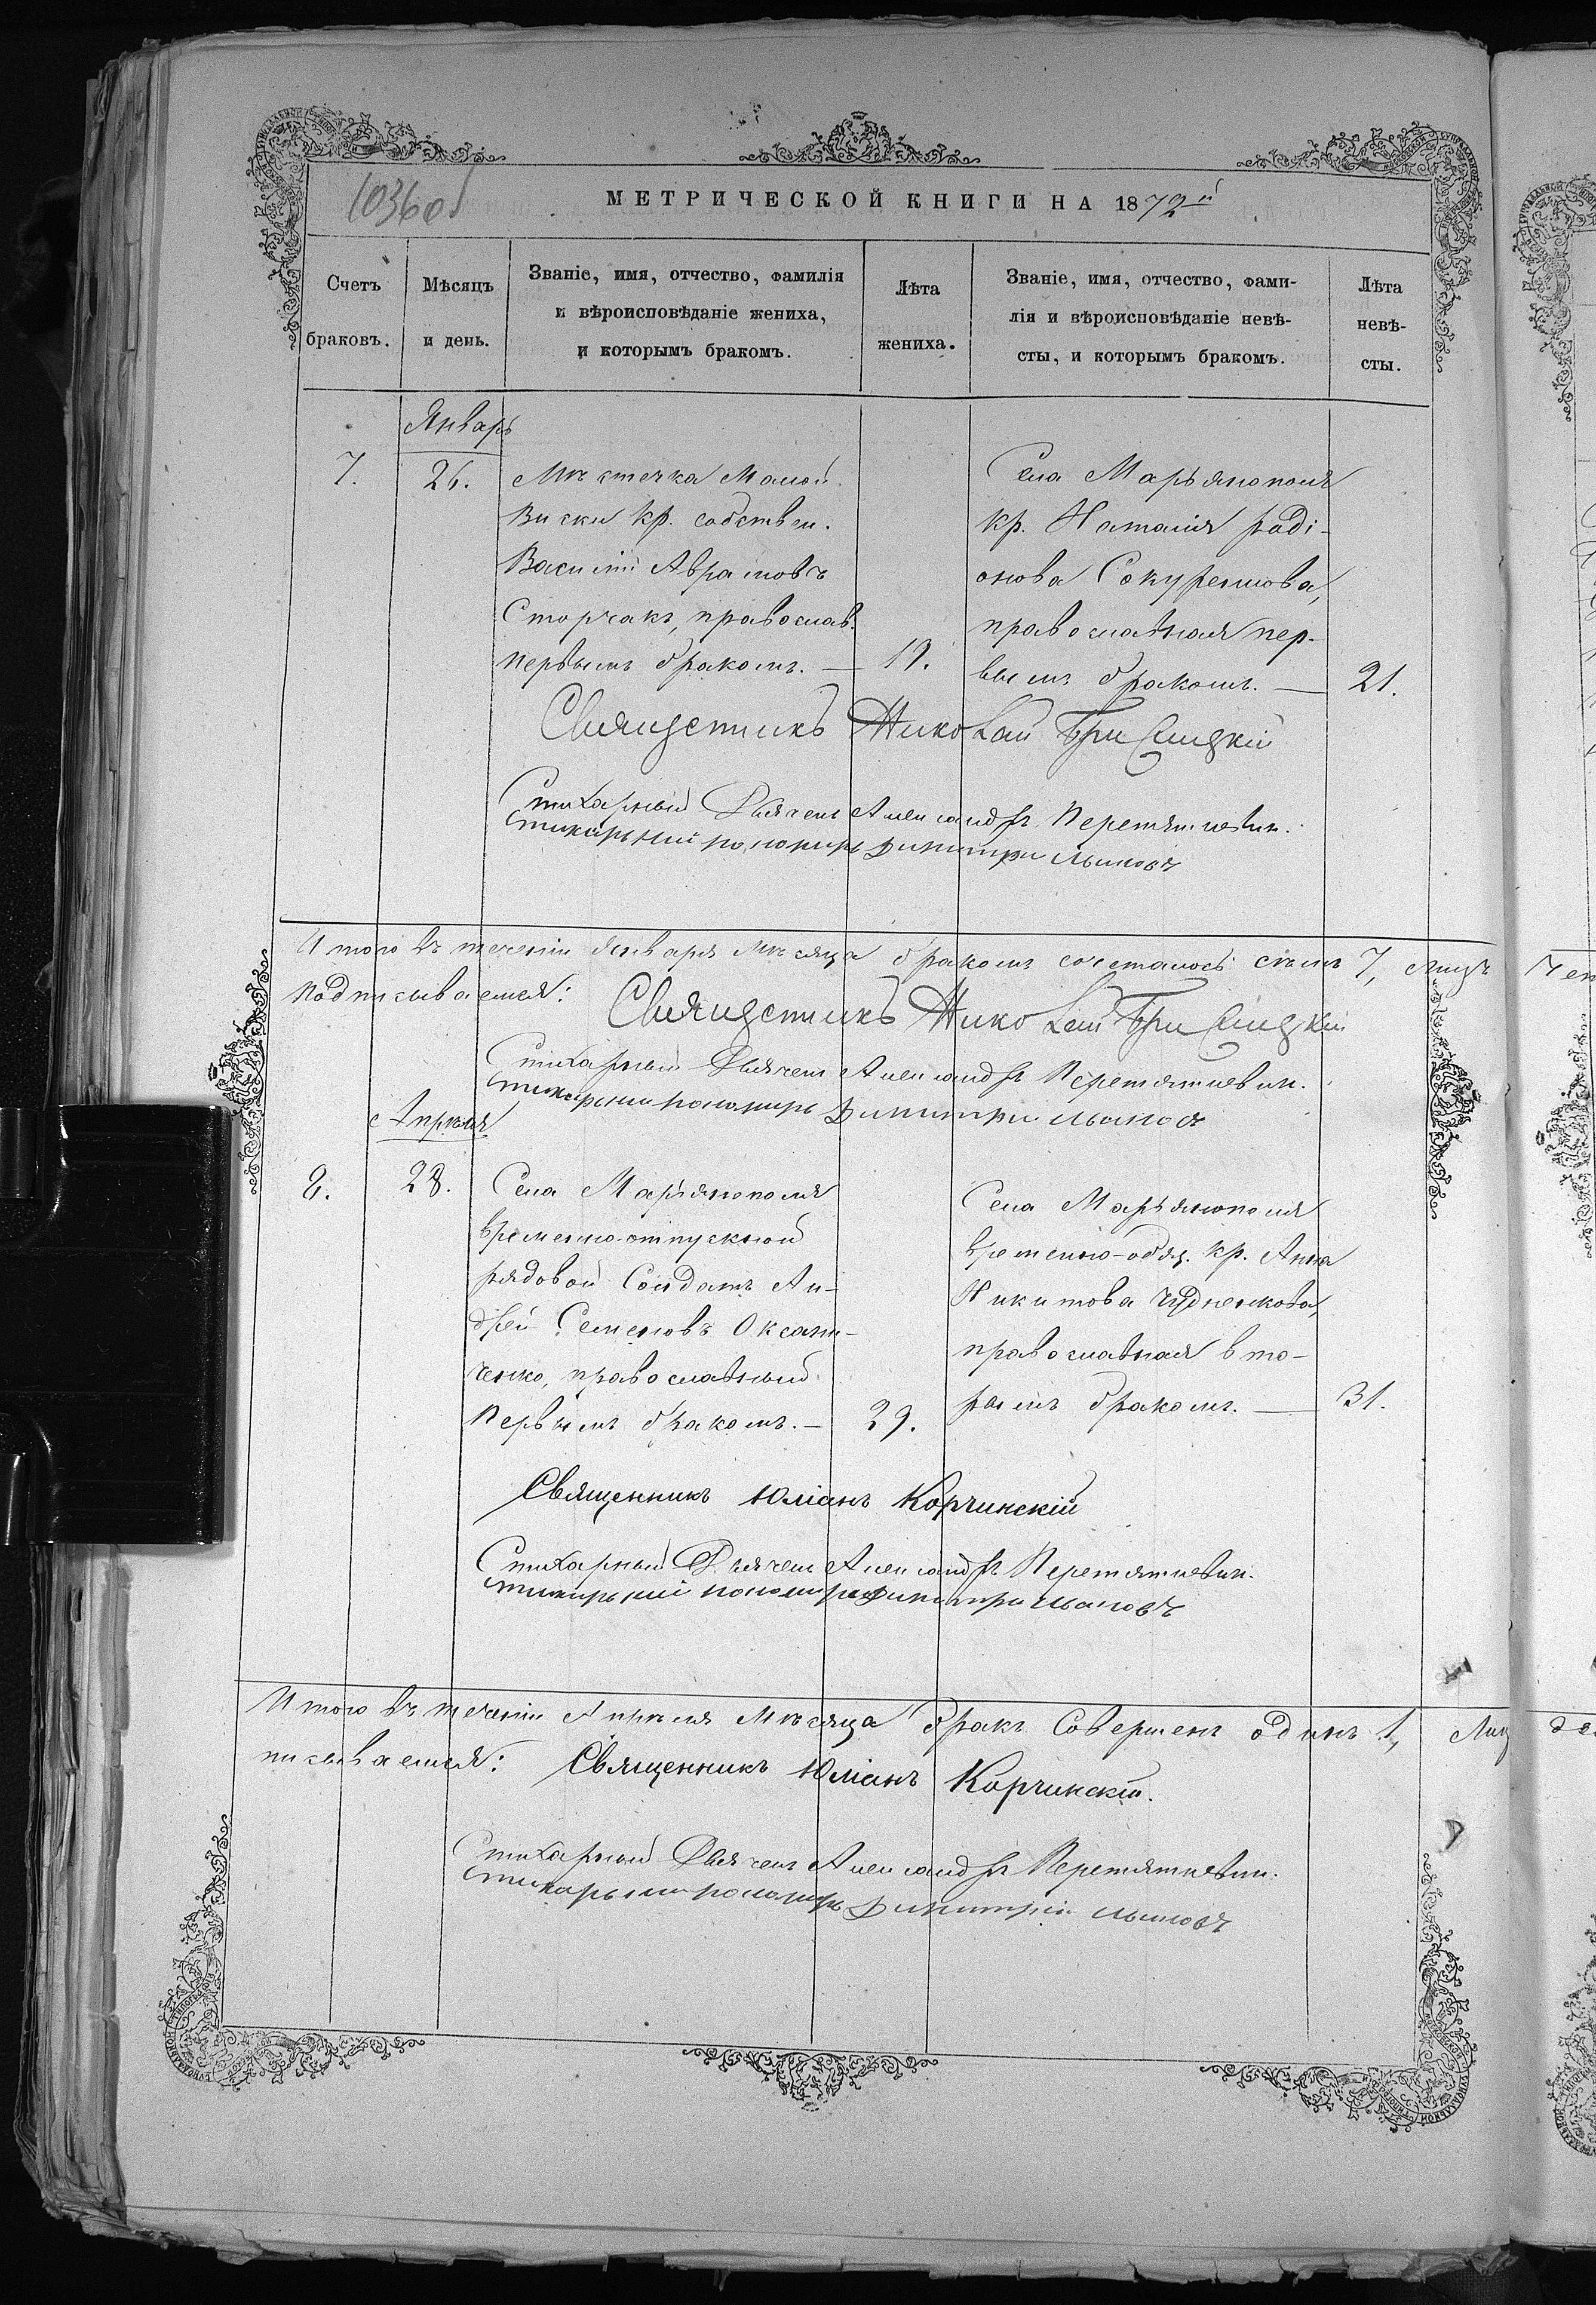 1036об
МЕТРИЧЕСКОЙ КНИГИ НА 1872й
Счетъ браковъ.
Мѣсяцъ и день.
Званіе, имя, отчество, фамилія
и вѣроисповѣданіе жениха,
и которымъ бракомъ.
Лѣта жениха.
Званіе, имя, отчество, фами-
лія и вѣроисповѣданіе невѣ-
сты, и которымъ бракомъ.
Лѣта невѣ-
сты.
Январь
7.
26.
Мѣстечка Малой
Виски кр. собствен.
Василій Аврамовъ
Сторчакъ, православ.
первымъ бракомъ. —
19.
Села Марьянополя
кр. Наталія Раді-
онова Сокуренкова,
православная пер-
вымъ бракомъ. —
21.
Священникъ Николай
Стихарный Дьячекъ Александръ Перетяткевич.
Стихарный пономарь Димитрий
Итого въ теченіи Января мѣсяца бракомъ сочеталось семь 7, лицъ
подписываемся:
Священникъ Николай
Стихарный Дьячекъ Александръ Перетяткевич.
Стихарный пономарь Димитрий
Апрѣля
8.
28.
Села Марьянополя
временно-отпускной
рядовой Солдатъ Ан-
дрей Семеновъ Оксани-
ченко, православный
Первымъ бракомъ. —
29.
Села Марьянополя
временно-обяз. кр. Анна
Никитова Чудненкова,
православная вто-
рымъ бракомъ. —
31.
Священникъ Юліанъ Корчинскій
Стихарный Дьячекъ Александръ Перетяткевич.
Стихарный пономарь Димитрий
Итого въ теченіи Апрѣля Мѣсяца бракъ Совершенъ одинъ 1,
писываемся:
Священникъ Юліанъ Корчинскій.
Стихарный Дьячекъ Александръ Перетяткевич.
Стихарный пономарь Димитрій